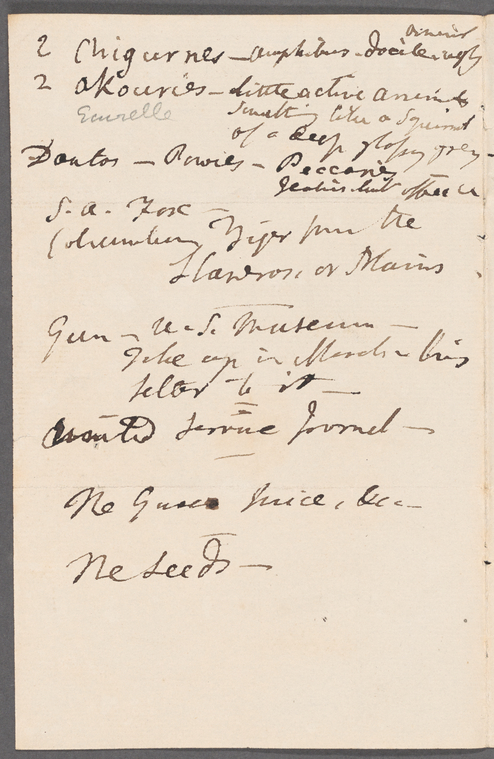 animals
2 Chigurnes — amphibus - docile - ugly
2 Akouries — little active animals
Something like a Squirrel
of a deep glossy grey -
Dantos — Powies — Peccaries
S. a. Fox —
Columbian Tiger from the
Llaneros, or Plains
Gun — U. S. Museum —
Take up in March - his
letter to it —
United Service Journal —
The Juice, &c. —
The Seeds —